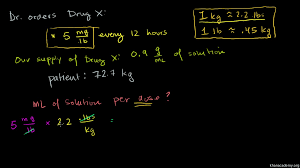 Dr. orders Drug X:
* 5 mg/lb every 12 hours
1 kg ≈ 2.2 lbs
1 lb ≈ .45 kg
Our supply of Drug X: 0.9 g/mL of solution
patient: 72.7 kg
mL of solution per dose?
5 mg/lb × 2.2 lbs/kg =